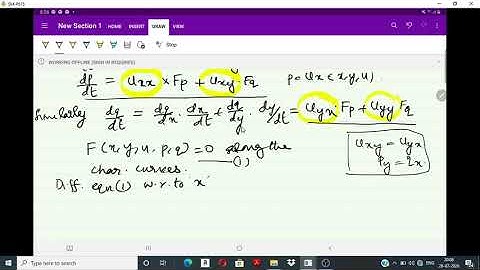 New Section 1
HOME
INSERT
DRAW
VIEW
Stop
WORKING OFFLINE (SIGN IN REQUIRED)
dp/dt = uxx × Fp + uxy Fq p = ux(x, y, u)
Similarly dq/dt = dq/dx · dx/dt + dq/dy · dy/dt = uyx Fp + uyy Fq
F(x, y, u, p, q) = 0 along the
(1)
char. curves.
uxy = uyx
Py = qx
Diff. eqn (1) w.r. to 'x'